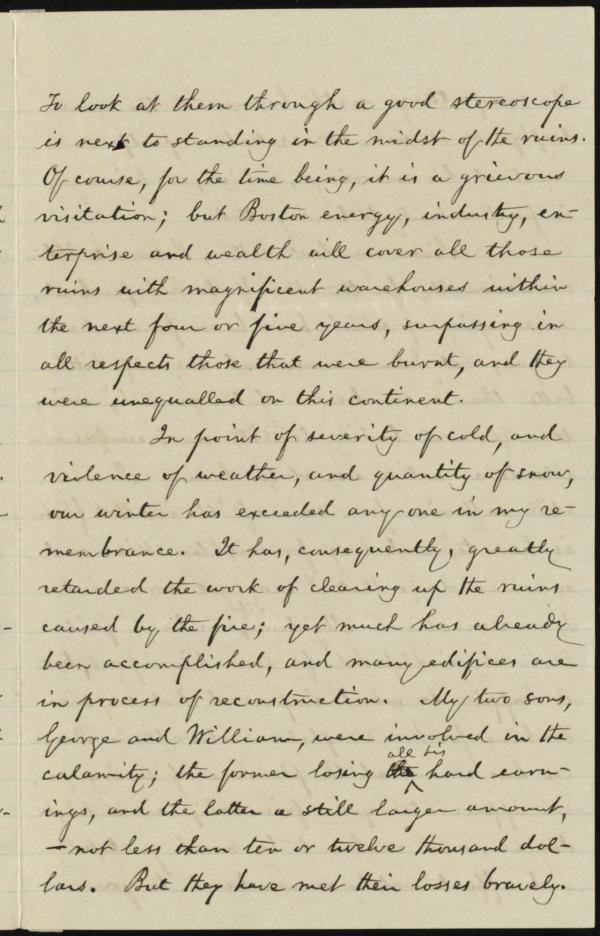 To look at them through a good stereoscope
is next to standing in the midst of the ruins.
Of course, for the time being, it is a grievous
visitation; but Boston energy, industry, en-
terprise and wealth will cover all those
ruins with magnificent warehouses within
the next four or five years, surpassing in
all respects those that were burnt, and they
were unequalled on this continent.
In point of severity of cold, and
violence of weather, and quantity of snow,
our winter has exceeded any one in my re-
membrance. It has, consequently, greatly
retarded the work of clearing up the ruins
caused by the fire; yet much has already
been accomplished, and many edifices are
in process of reconstruction. My two sons,
George and William, were involved in the
all his
calamity; the former losing the hard earn-
ings, and the latter a still larger amount,
—not less than ten or twelve thousand dol-
lars. But they have met their losses bravely.